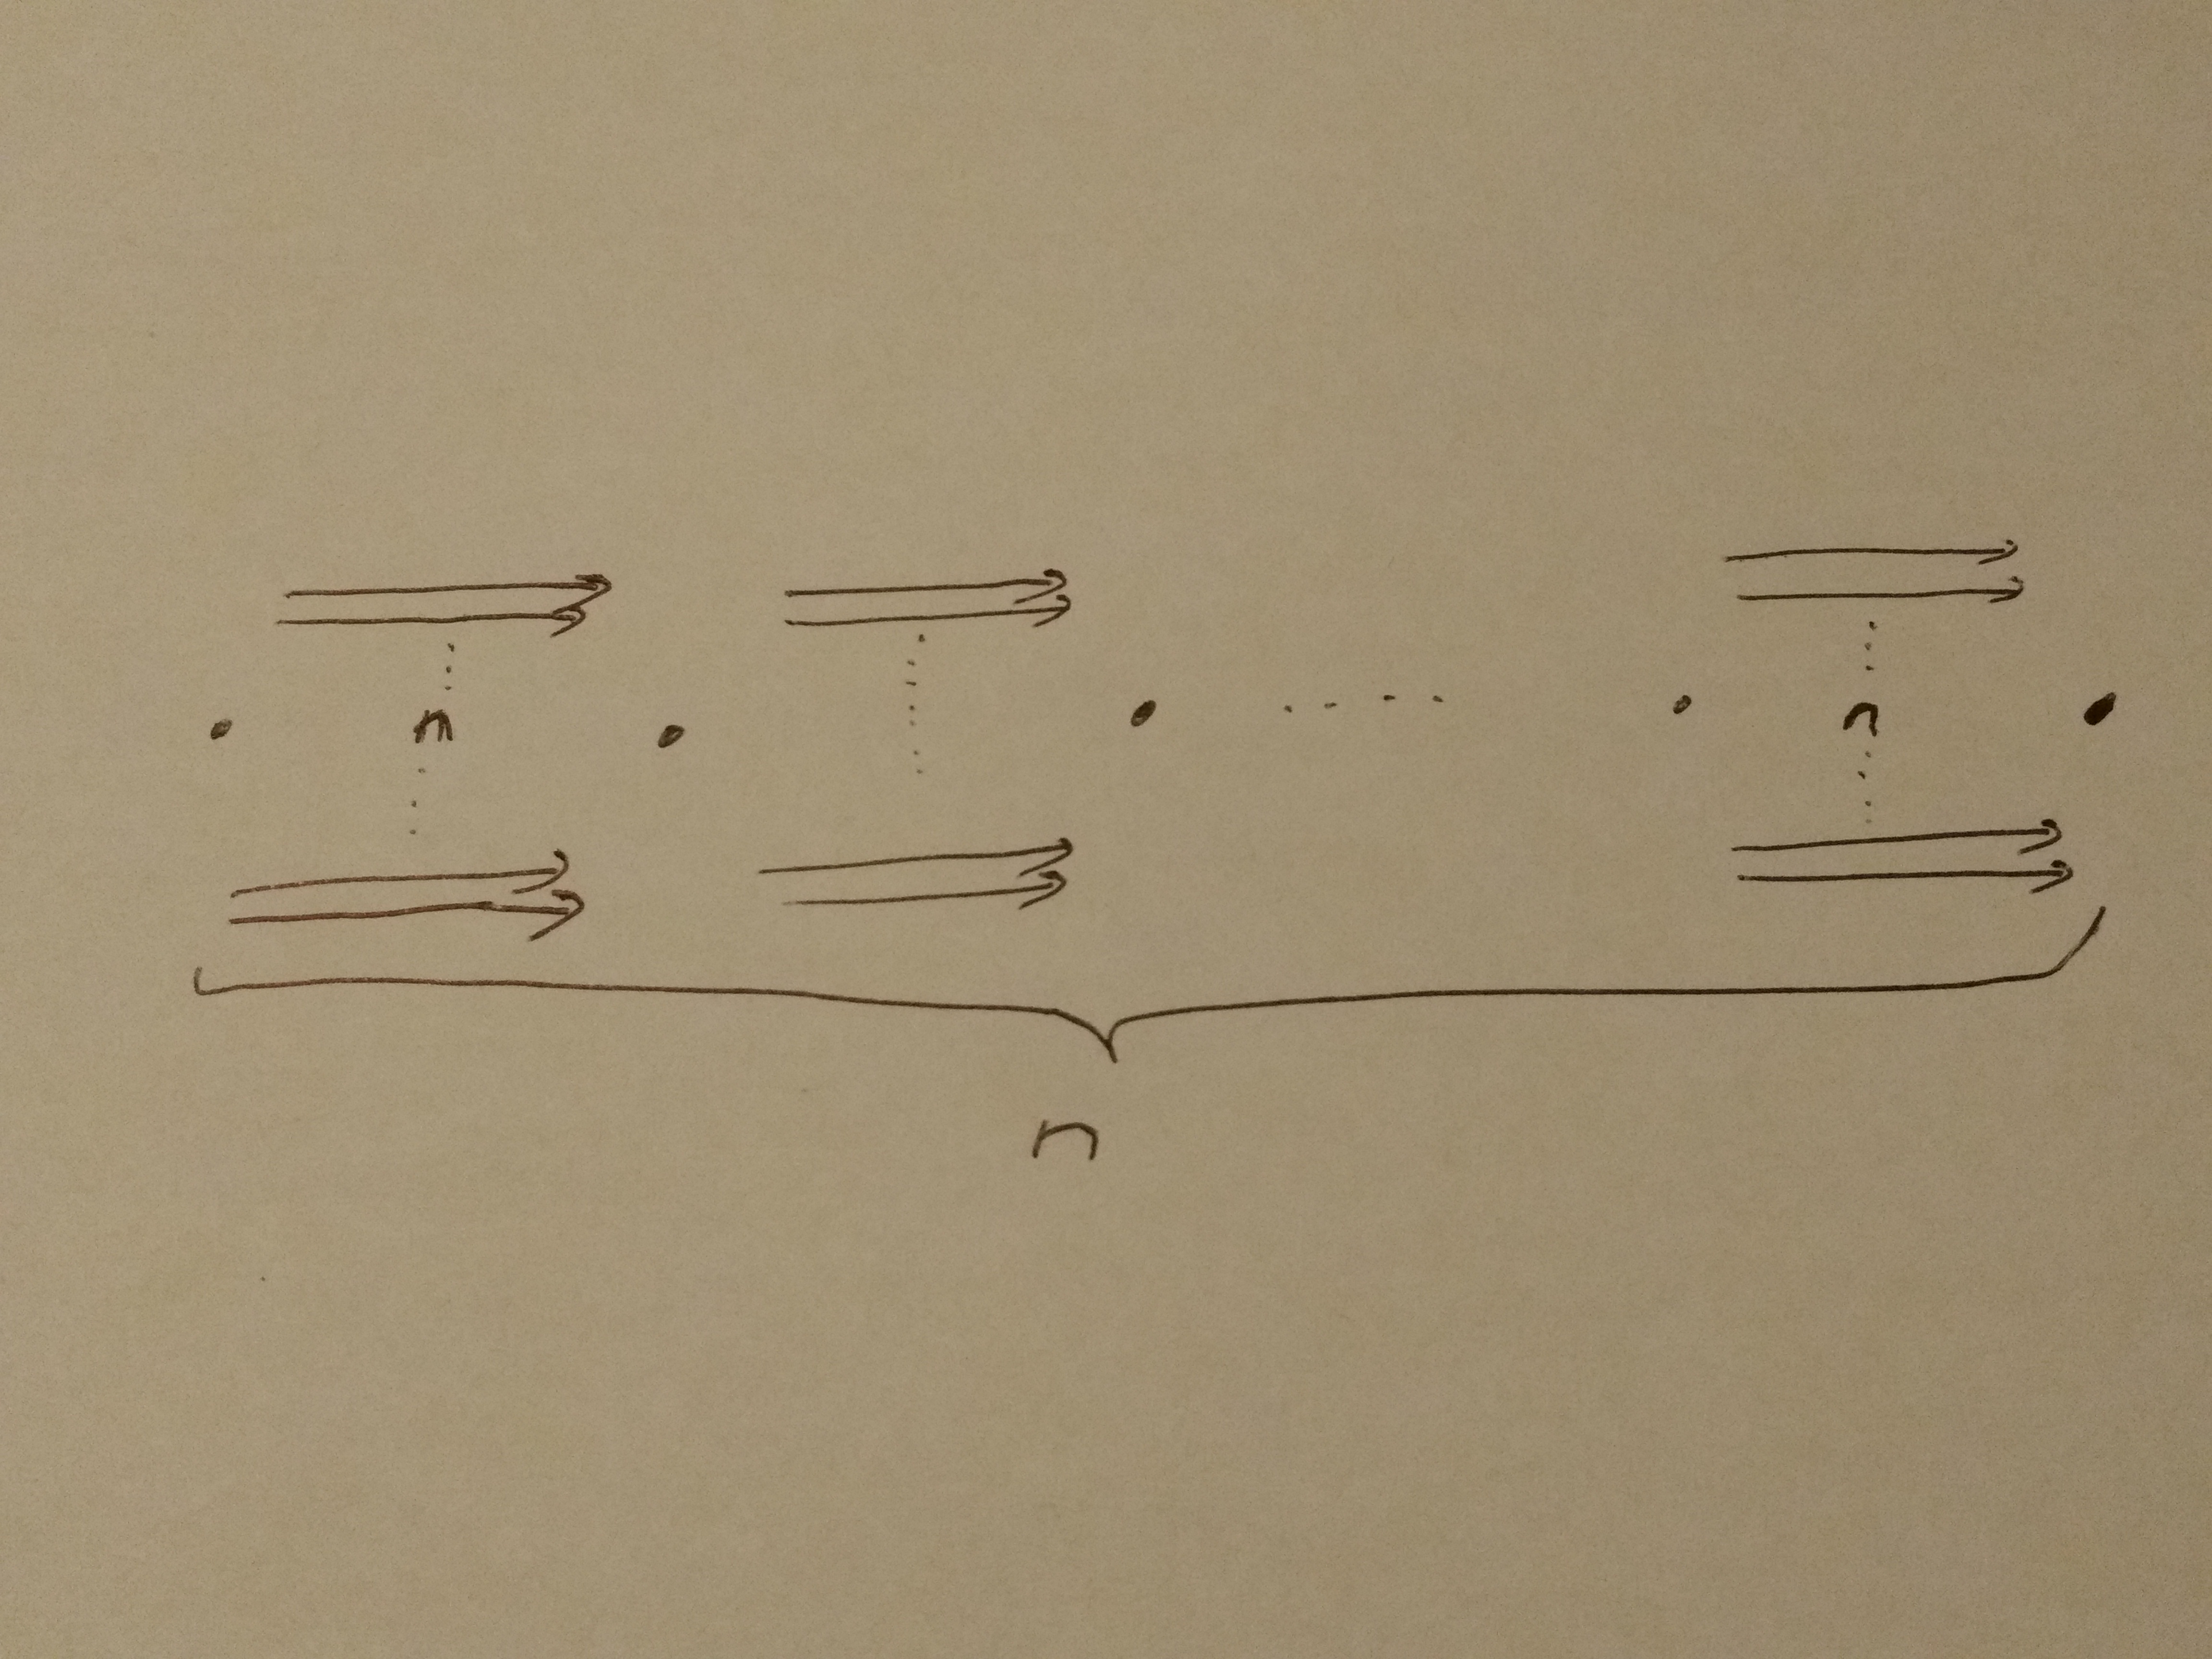 n n
n